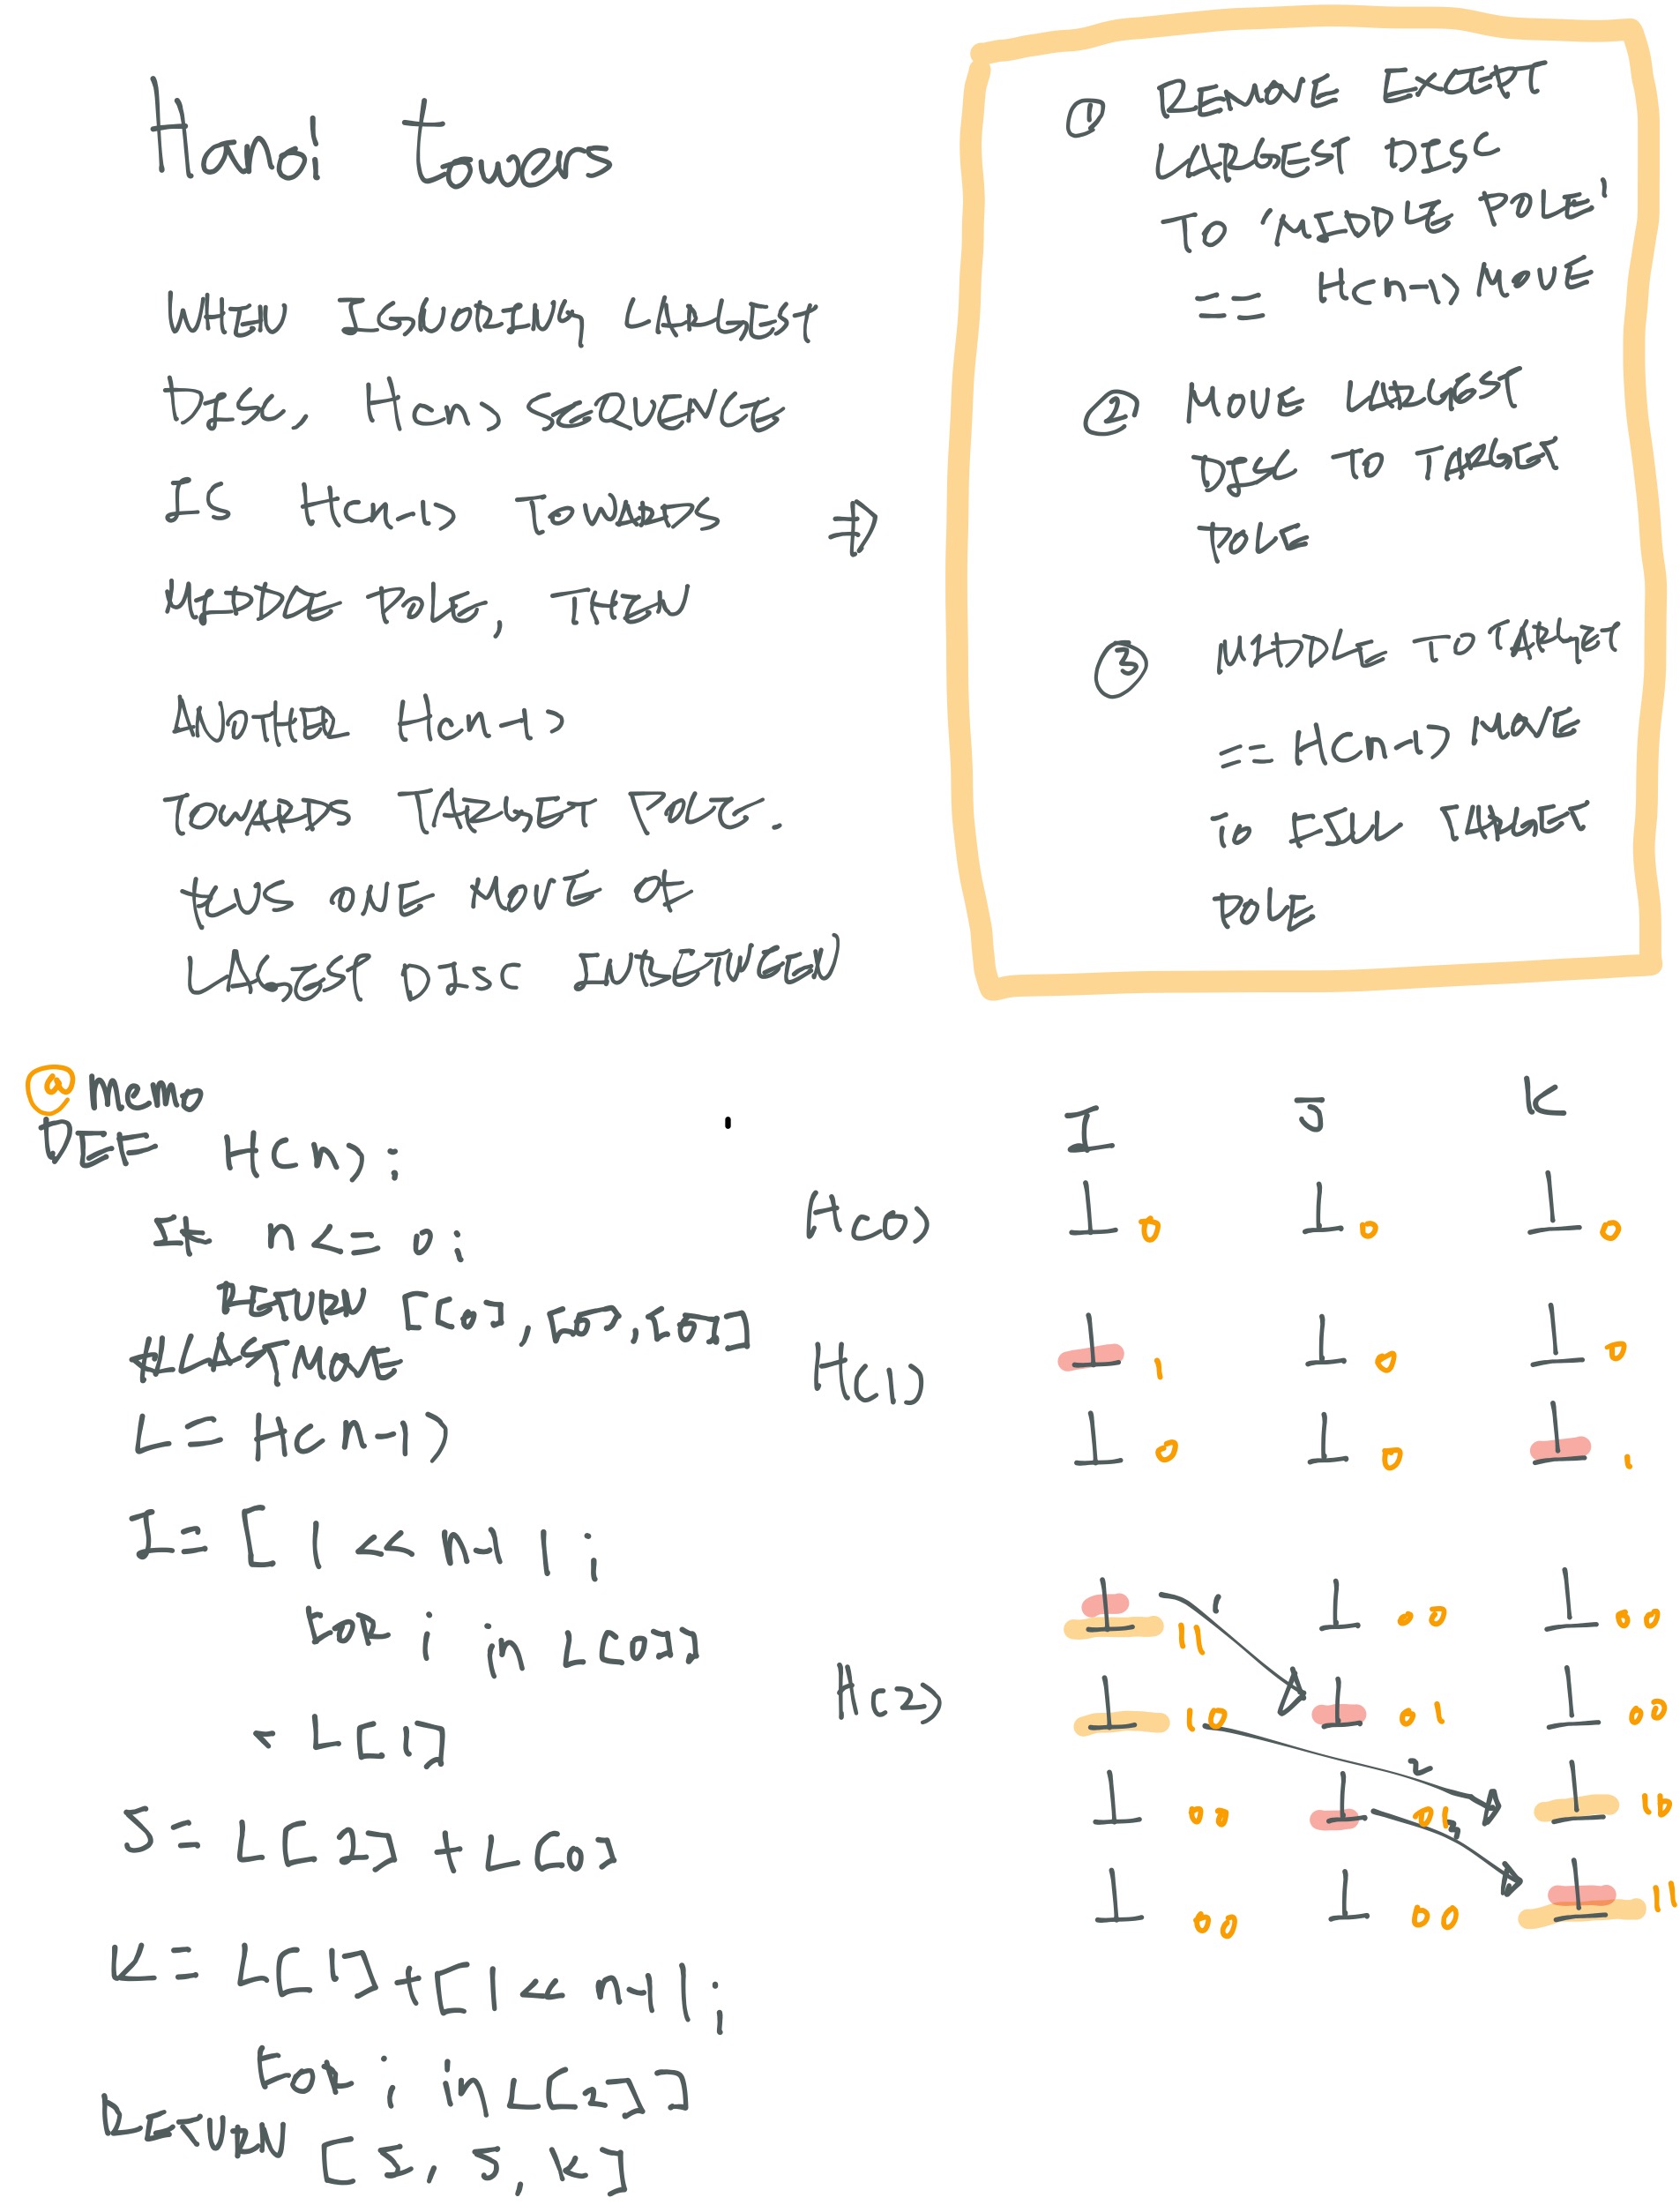 Hanoi towers
WHEN IGNORING LARGEST
DISC, H(n) SEQUENCE
IS H(n-1) TOWARDS
MIDDLE POLE, THEN
ANOTHER H(n-1)
TOWARDS TARGET POLE.
PLUS ONE MOVE OF
LARGEST DISC INBETWEEN
⇒
① REMOVE EXCEPT
LARGEST DISC
TO 'MIDDLE POLE'
== H(n-1) MOVE
② MOVE LARGEST
DISC TO TARGET
POLE
③ MIDDLE TO TARGET
== H(n-1) MOVE
TO FILL TARGET
POLE
@memo
DEF H(n):
IF n <= 0:
RETURN [[0],[0],[0]]
#LAST MOVE
L = H(n-1)
I = [1 << n-1 | i
FOR i in L[0]]
+ L[1]
J = L[2] + L[0]
K = L[1] + [1 << n-1 | i
FOR i in L[2]]
RETURN [I, J, K]
I J K
H(0) 0 0 0
H(1) 1 0 0
0 0 1
11 00 00
H(2) 10 01 00
00 01 10
00 00 11
1
2
3